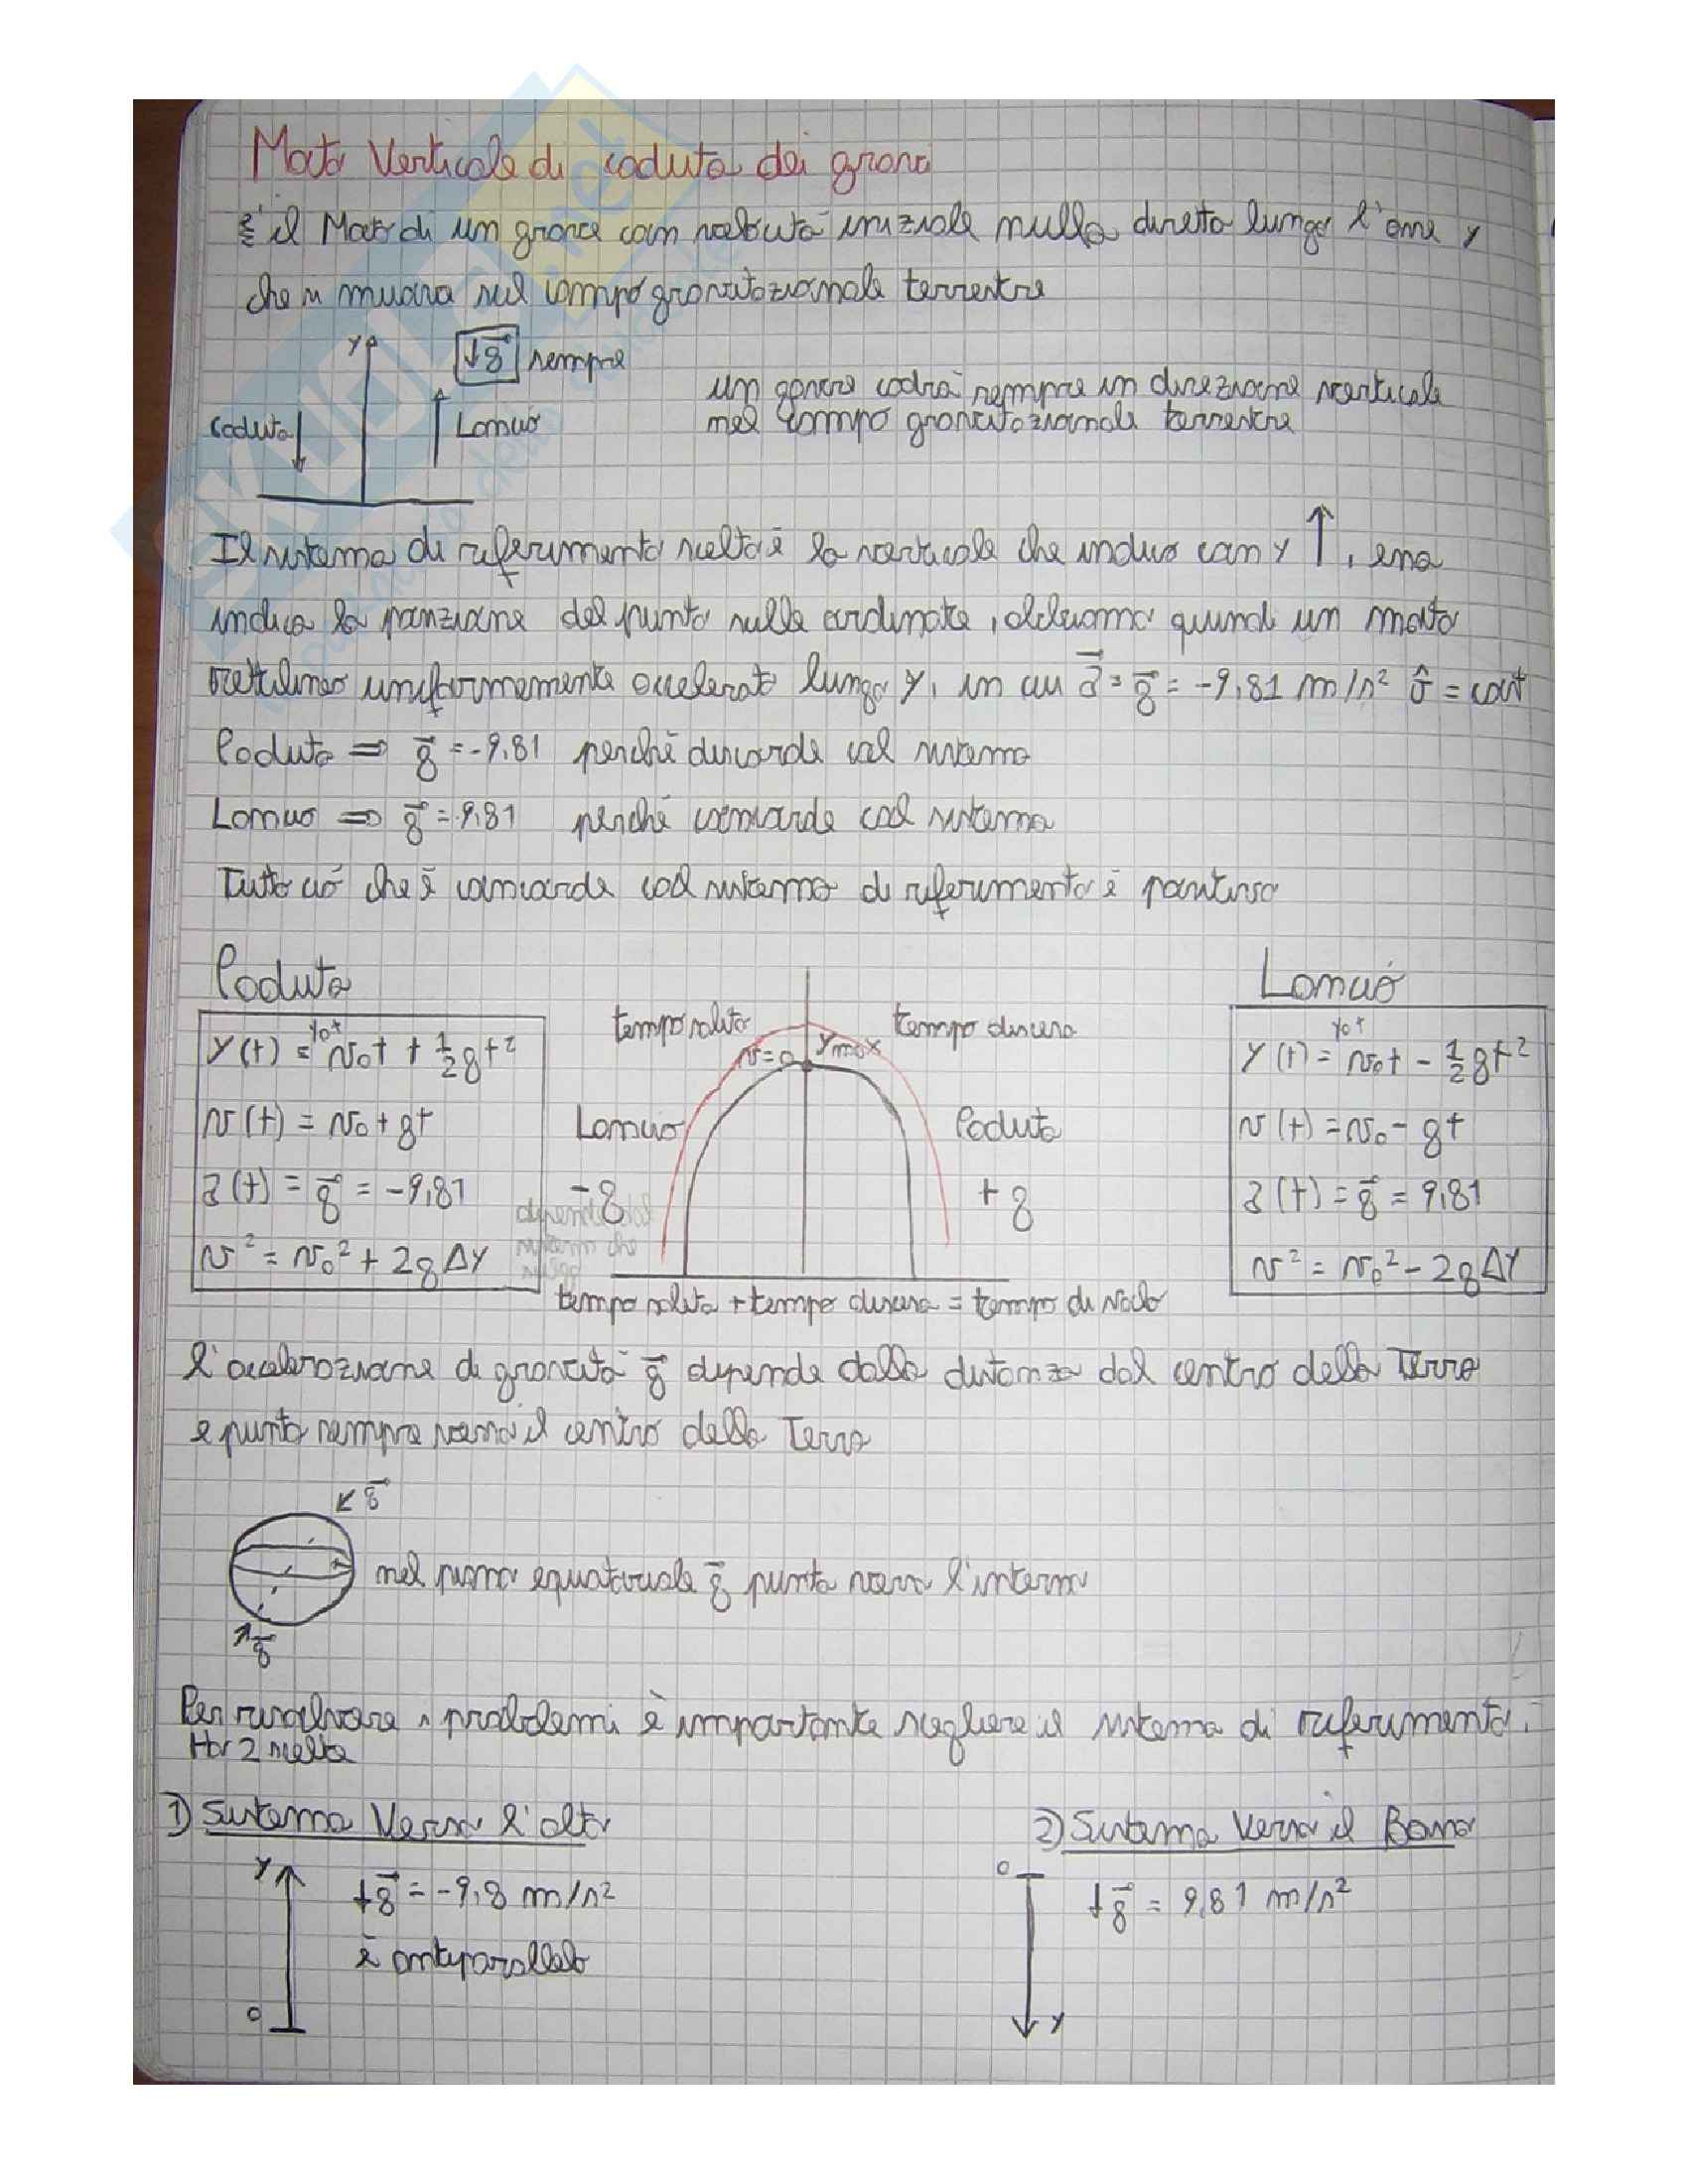 Moto Verticale di caduta dei gravi
È il Moto di un grave con velocità iniziale nulla diretta lungo l'asse y
che si muova nel campo gravitazionale terrestre
y
↓g⃗ sempre
caduta
Lancio
un grave cadrà sempre in direzione verticale
nel campo gravitazionale terrestre
Il sistema di riferimento scelto è la verticale che indico con y ↑, essa
indica la posizione del punto sulle ordinate, abbiamo quindi un moto
rettilineo uniformemente accelerato lungo y, in cui a⃗ = g⃗ = -9,81 m/s² ĵ = cost
Caduta ⇒ g⃗ = -9,81 perché discorde col sistema
Lancio ⇒ g⃗ = 9,81 perché concorde col sistema
Tutto ciò che è concorde col sistema di riferimento è positivo
Caduta
y0+
y(t) = v₀t + ½gt²
v(t) = v₀ + gt
a(t) = g⃗ = -9,81
v² = v₀² + 2gΔy
tempo salita
tempo discesa
v=0
ymax
Lancio
Caduta
-g
+g
dipende dal
sistema che
tempo salita + tempo discesa = tempo di volo
Lanció
y0+
y(t) = v₀t - ½gt²
v(t) = v₀ - gt
a(t) = g⃗ = 9,81
v² = v₀² - 2gΔy
l'accelerazione di gravità g⃗ dipende dalla distanza dal centro della Terra
e punta sempre verso il centro della Terra
g⃗
nel piano equatoriale g⃗ punta verso l'interno
g⃗
Per risolvere i problemi è importante scegliere il sistema di riferimento.
Ho 2 scelte
1) Sistema Verso l'alto
2) Sistema Verso il Basso
y
↓g⃗ = -9,8 m/s²
è antiparallelo
0
0
↓g⃗ = 9,81 m/s²
y